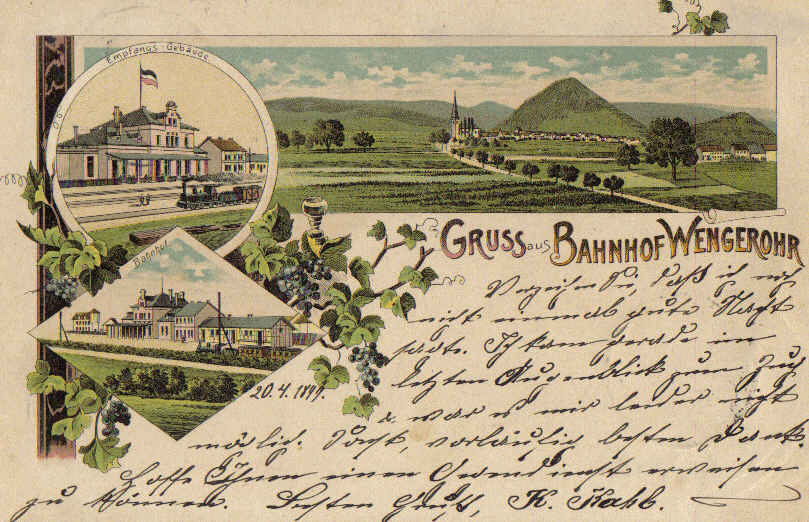 Empfangs-Gebäude
Bahnhof
GRUSS aus BAHNHOF WENGEROHR
20.4.1899.
Verzeihen Sie, daß ich mich
nicht einmal gute Nacht
sagte. Ich kam gerade im
letzten Augenblick zum Zug
u. war es mir leider nicht
möglich. Sonst, vorläufig besten Dank.
Hoffe Ihnen einen Gegendienst erweisen
zu können. Besten Gruß, K. Kahl.